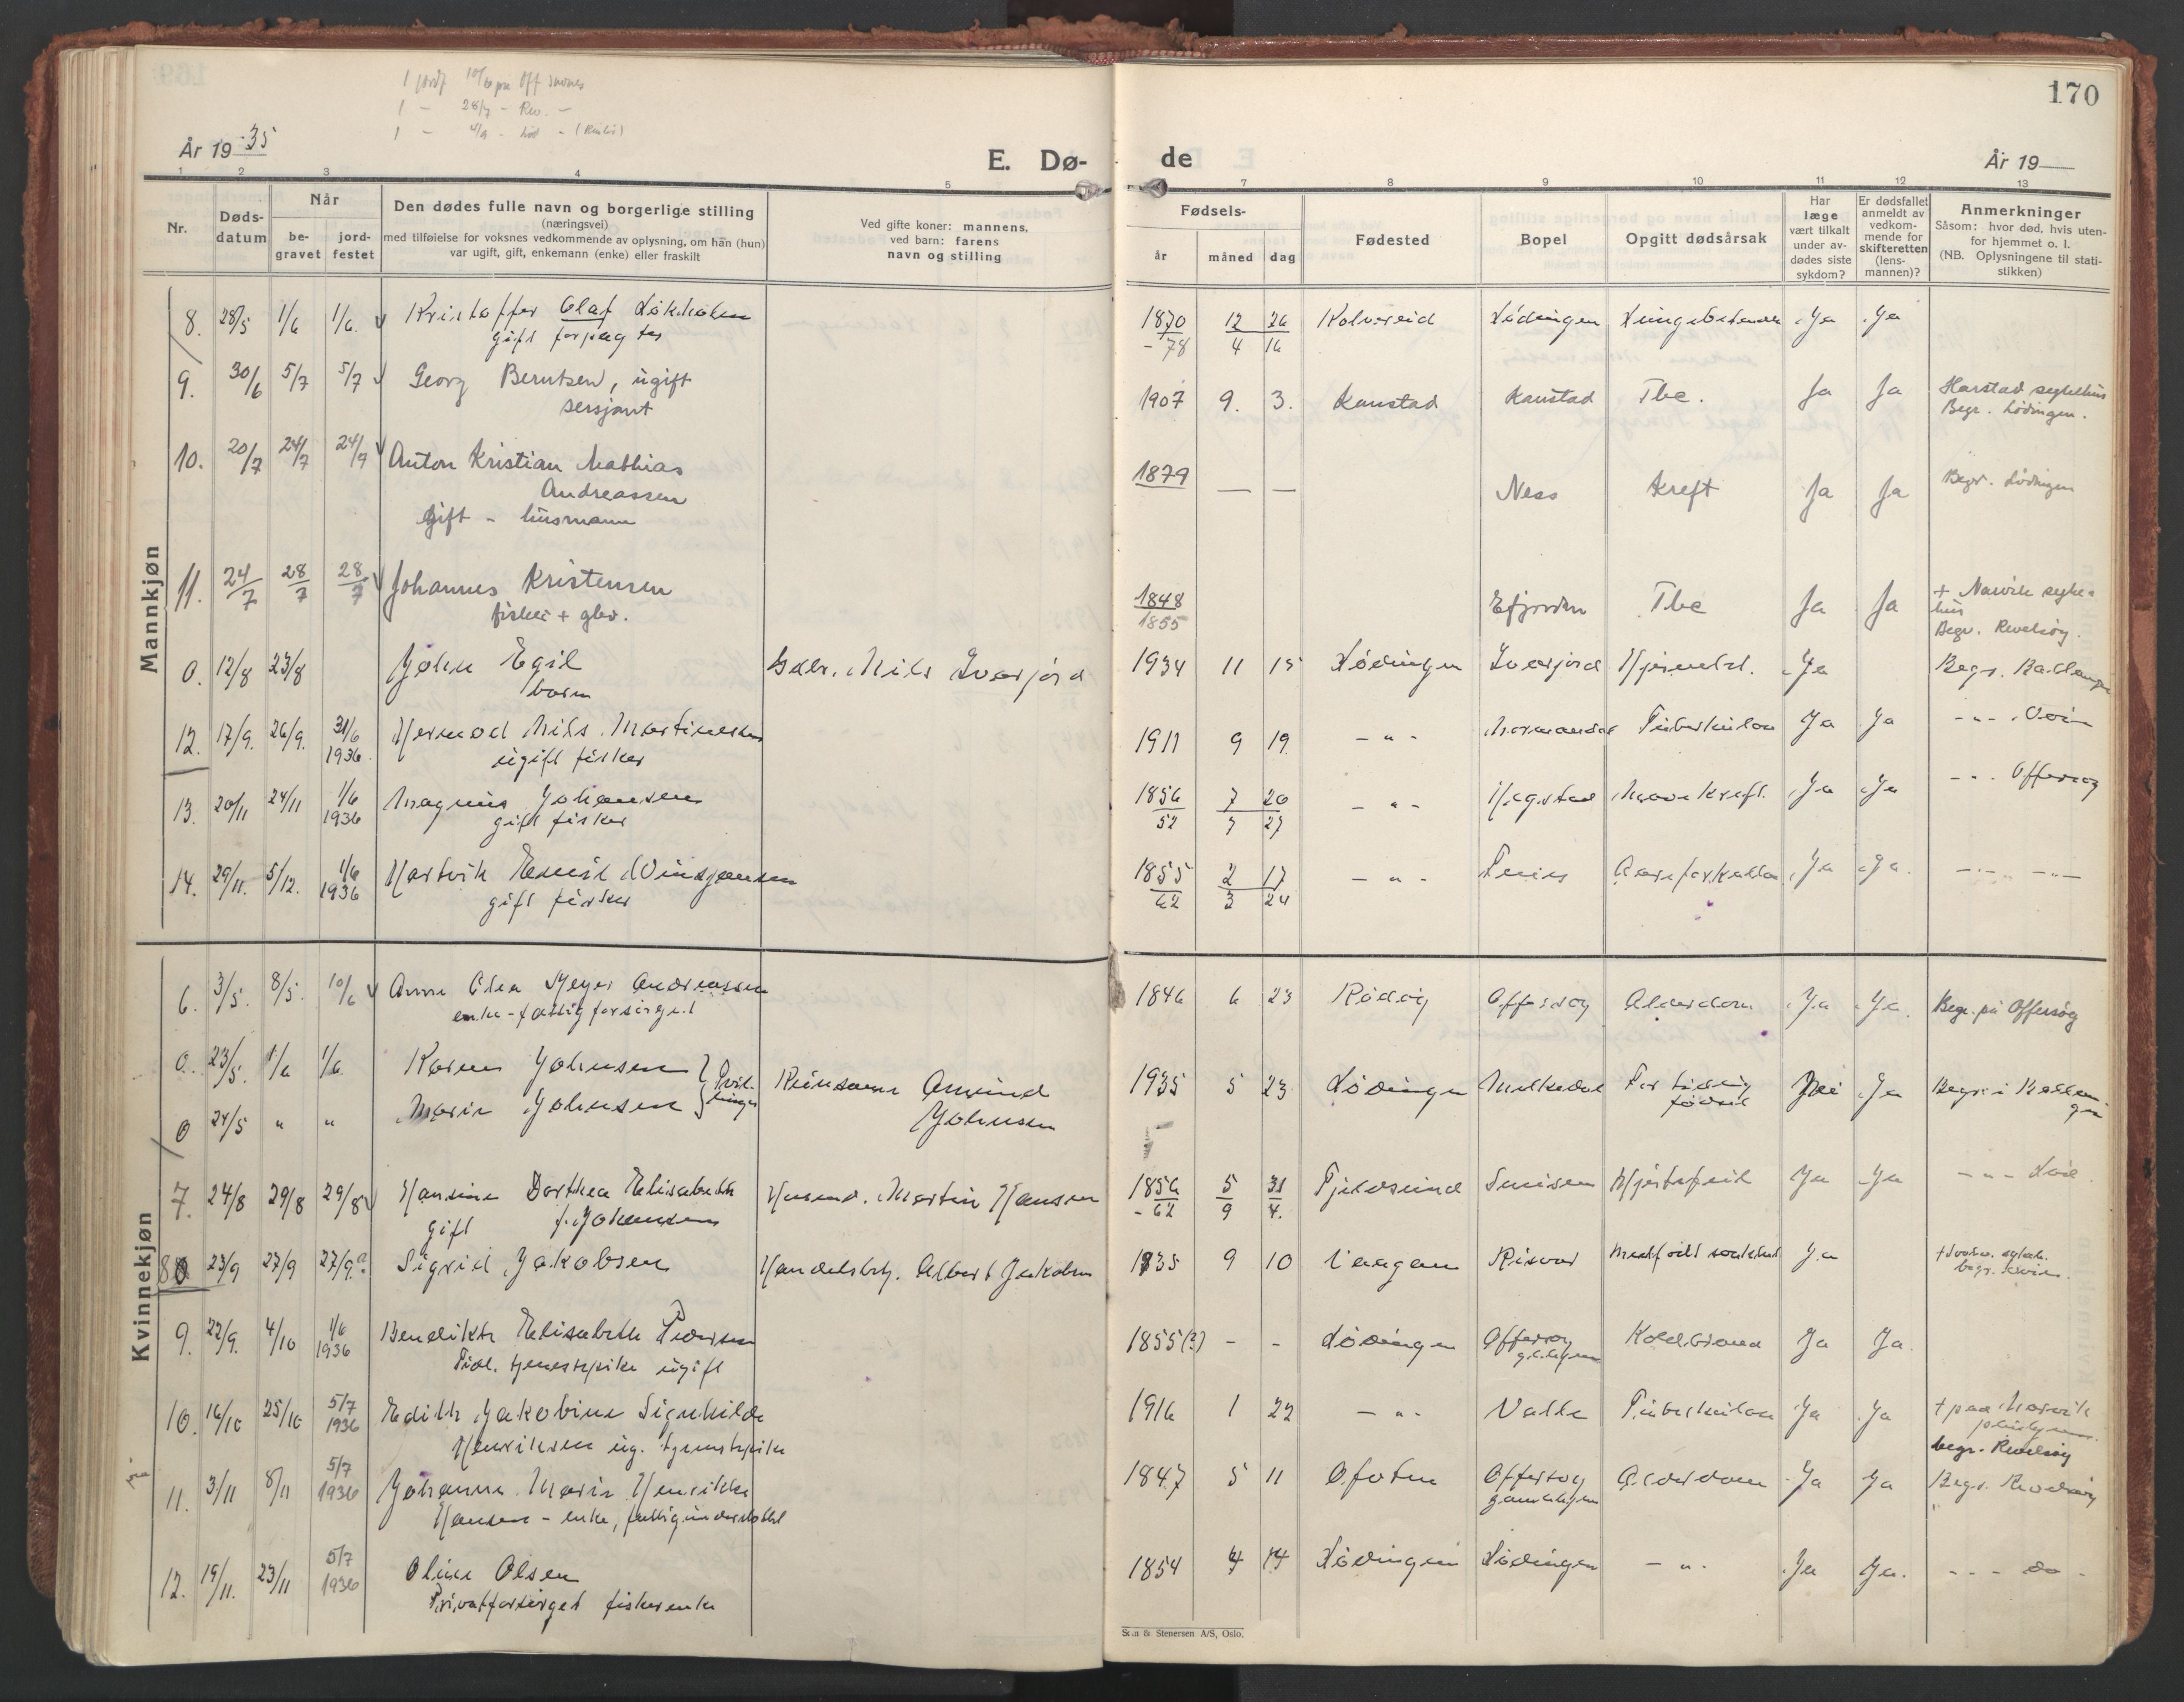 170
År 1935
E. Dø-
de
År 19
1 2 3 4 5 7 8 9 10 11 12 13
Nr.
Døds-
datum
Når
be-
gravet
jord-
festet
Den dødes fulle navn og borgerlige stilling
(næringsvei)
med tilføielse for voksnes vedkommende av oplysning, om han (hun)
var ugift, gift, enkemann (enke) eller fraskilt
Ved gifte koner: mannens,
ved barn: farens
navn og stilling
Fødsels-
år måned dag
Fødested
Bopel
Opgitt dødsårsak
Har
læge
vært tilkalt
under av-
dødes siste
sykdom?
Er dødsfallet
anmeldt av
vedkom-
mende for
skifteretten
(lens-
mannen)?
Anmerkninger
Såsom: hvor død, hvis uten-
for hjemmet o. l.
(NB. Oplysningene til stati-
stikken)
Mannkjøn
8. 28/5 1/6 1/6. Kristoffer Olaf 1870 12 26 Kolvereid Lødingen Ja Ja
gift forpagter - 78 4 16
9. 30/6 5/7 5/7 Georg Berntsen, ugift 1907 9. 3. Kanstad Kanstad Tbc. Ja Ja Harstad sykehus
sersjant Begr. Lødingen.
10. 20/7 24/7 24/7 Anton Kristian Mathias 1879 — — Ness Kreft Ja Ja Begr. Lødingen
Andreassen
Gift - husmann
11. 24/7 28/7 28/7 Johannes Kristensen 1848 Efjorden Tbc Ja Ja + Narvik syke-
hus
fisker + gbr. 1855 Begr. Revelsøy.
0. 12/8 23/8 John Egil Gbr. Nils Ivarjord 1934 11 15 Lødingen Ivarjord Ja Begr. Ballangen
barn
12. 17/9. 26/9. 31/6 1936 Hermod Nils Martinesen 1911 9 19 - " - Tuberkulose Ja Ja - " -
ugift fisker
13. 20/11 24/11 1/6 1936 Magnus Johansen 1856 7 20 - " - Hegstad Mavekreft. Ja Ja - " - Offersøy
gift fisker 52 7 27
14. 29/11. 5/12. 1/6 1936 Hartvik Emil 1855 2 17 - " - Ja Ja. - " - - " -
gift fisker 62 3 24
Kvinnekjøn
6. 3/5. 8/5. 10/6 Anne Meyer Andreassen 1846 6 23 Rødøy Offersøy Alderdom Ja Ja. Begr. på Offersøy
enke - fattigforsørget
0. 23/5. 1/6 1/6. Karen Johnsen } Tvil-
linger Reinsame Amund 1935 5 23 Lødingen Melkedal For tidlig
fødsel Nei Ja Begr. i Ballan-
gen
0 24/5 " " Marie Johnsen Johnsen
7. 24/8 29/8 29/8 Hansine Dorthea Elisabeth Husmd. Martin Hansen 1856 5 31 Fjeldsund Hjertefeil Ja Ja - " - Lød.
gift f. Johansen - 62 9 4.
8 23/9 27/9 27/9. Sigrid Jakobsen Handelsb. Albert Jakobsen 1935 9 10 Vaagan Risvær Ja
9. 22/9. 4/10 1/6 1936 Bendikte Elisabeth Pedersen 1855(?) - - Lødingen Offersøy Koldbrand Ja Ja.
Tidl. tjenestepike ugift
10. 16/10 25/10 5/7 1936 Edith Jakobine Signhilde 1916 1 22 - " - Valle Tuberkulose Ja Ja + paa Narvik
pleiehjem.
Henriksen ug. tjenestepike begr. Revelsøy
11. 3/11 8/11 5/7 1936 Johanne Marie Henrikke 1847 5 11 Ofoten Offersøy
gamlehjem Alderdom Ja Ja Begr. Revelsøy
Hansen - enke, fattigunderstøttet
12. 19/11. 23/11 5/7 1936 Oline Olsen 1854 4 14 Lødingen Lødingen - " - Ja Ja. - - - do -
Privatforsørget fiskerenke
Sem & Stenersen A/S, Oslo.